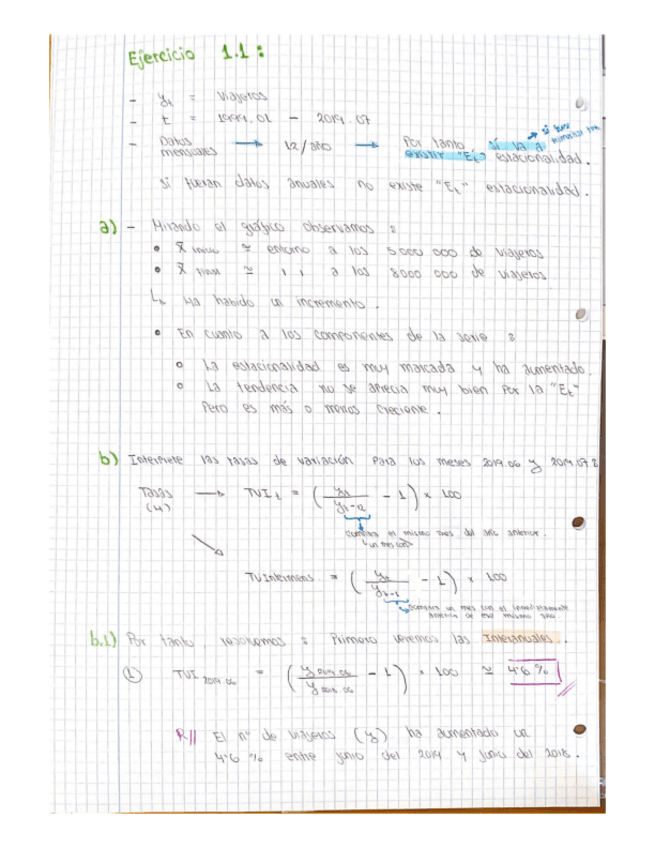 Ejercicio 1.1 :
- yt = Viajeros
- t = 1999.01 - 2019.07
- Datos mensuales → 12/año → Por tanto sí va a existir "Et" estacionalidad.
→ si fuese
Si fueran datos anuales no existe "Et" estacionalidad.
a) - Mirando el gráfico observamos :
• x̄ inicio ≃ entorno a los 5000 000 de viajeros
• x̄ final ≃ " " a los 8000 000 de viajeros
↳ Ha habido un incremento.
• En cuanto a los componentes de la serie :
○ La estacionalidad es muy marcada y ha aumentado.
○ La tendencia no se aprecia muy bien por la "Et"
Pero es más o menos creciente.
b) Interprete las tasas de variación para los meses 2019.06 y 2019.07:
Tasas (4) → TVI t = ( yt / yt-12 - 1 ) × 100
compara el mismo mes del año anterior.
TV Intermens = ( yt / yt-1 - 1 ) × 100
compara un mes con el inmediatamente
anterior de ese mismo año
b.1) Por tanto, resolvemos : Primero veremos las Interanuales.
① TVI 2019.06 = ( y 2019.06 / y 2018.06 - 1 ) × 100 ≃ 4'6 %
R// El nº de viajeros (y) ha aumentado un
4'6 % entre junio del 2019 y junio del 2018.